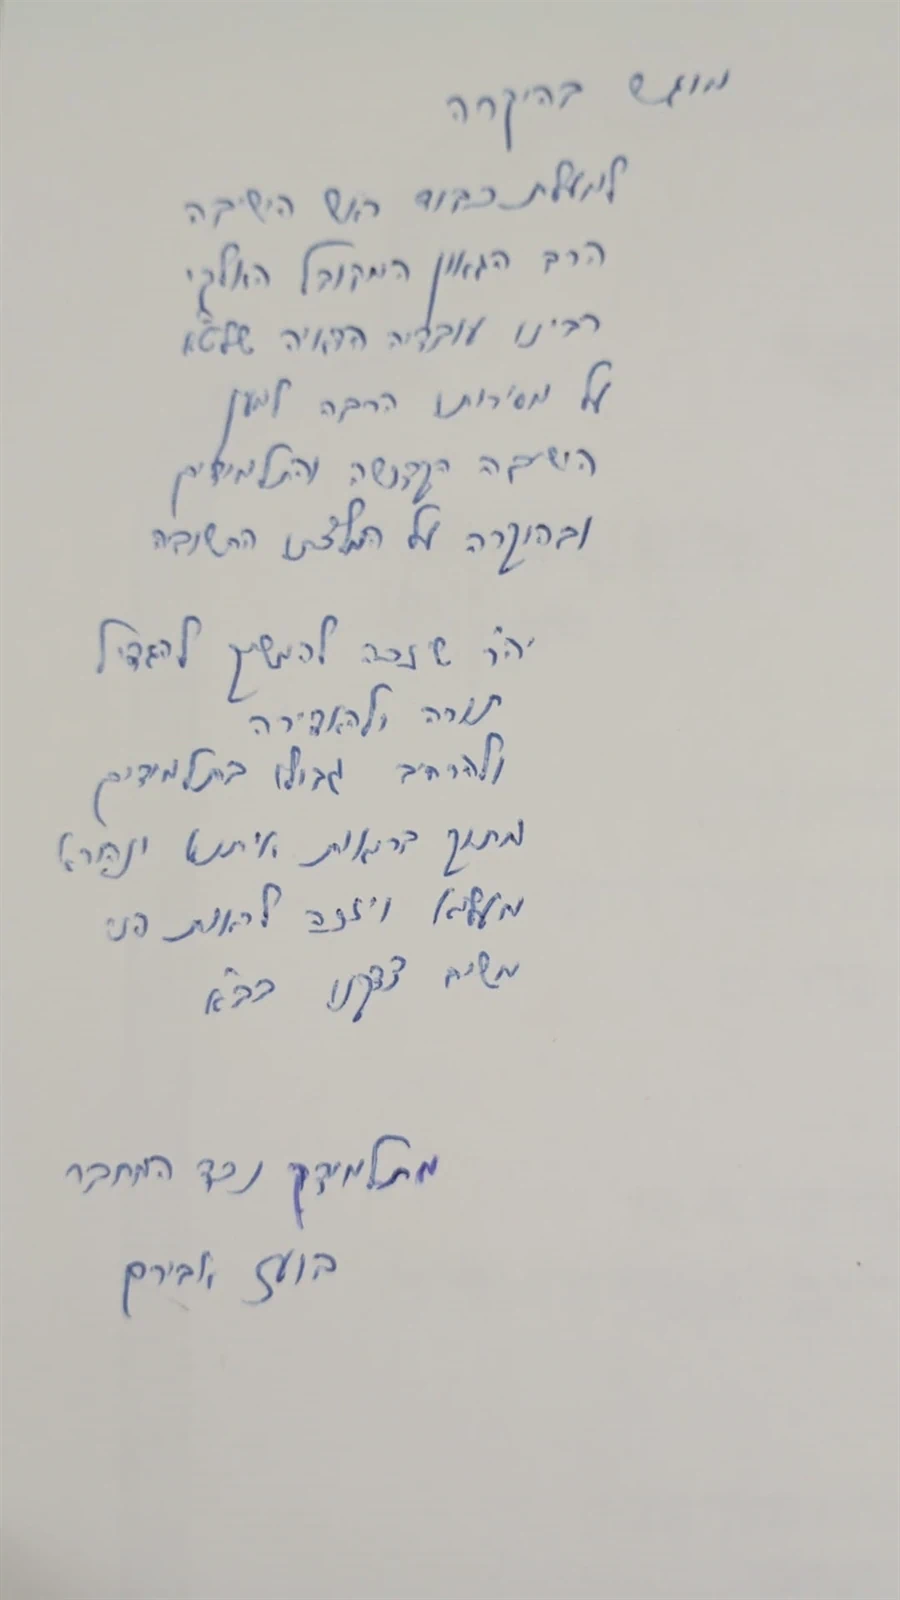 מוגש בהיקרה
למעלת כבוד ראש הישיבה
הרב הגאון המקובל האולקי
רבינו עובדיה הדאיה שליט"א
על מסירותו הרבה למען
הישיבה הקדושה והתלמידים
ובהוקרה על המלצתו החשובה
יה"ר שנזכה להמשיך להגדיל
תורה ולהאדירה
ולהרחיב גבולו בתלמידים
מתוך בריאות איתנא ונהורא
מעליא ויזכה לראות פני
משיח צדקנו בב"א
מתלמידך נכד המחבר
בועז אבירם